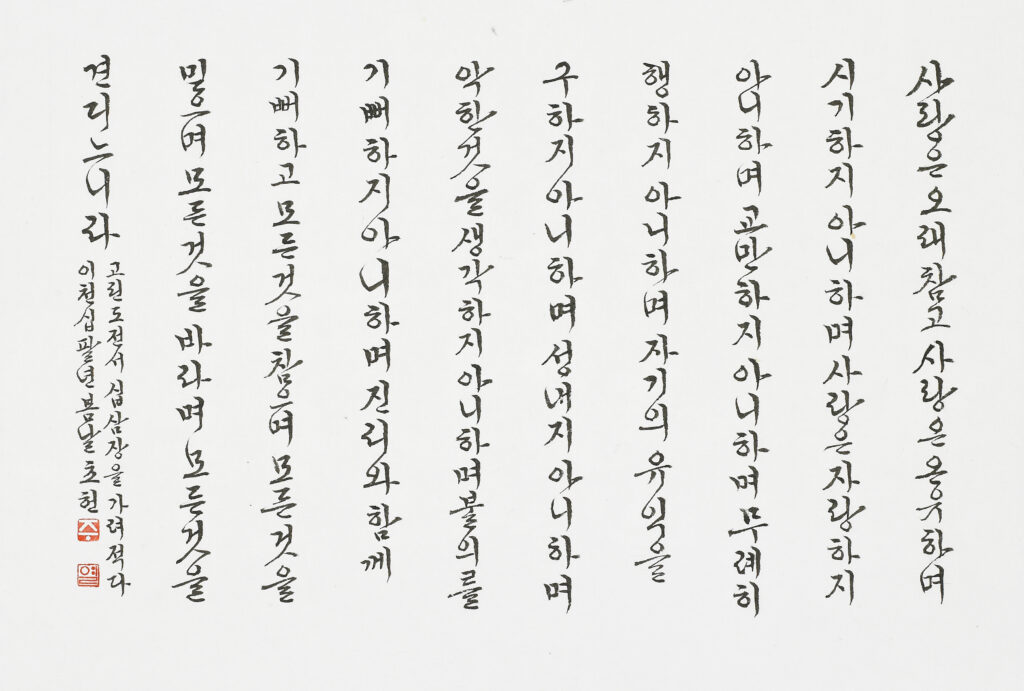 사랑은오래참고사랑은온유하며
시기하지아니하며사랑은자랑하지
아니하며교만하지아니하며무례히
행하지아니하며자기의유익을
구하지아니하며성내지아니하며
악한것을생각하지아니하며불의를
기뻐하지아니하며진리와함께
기뻐하고모든것을참으며모든것을
믿으며모든것을바라며모든것을
견디느니라
고린도전서십삼장을가려적다
이천십팔년봄날초헌